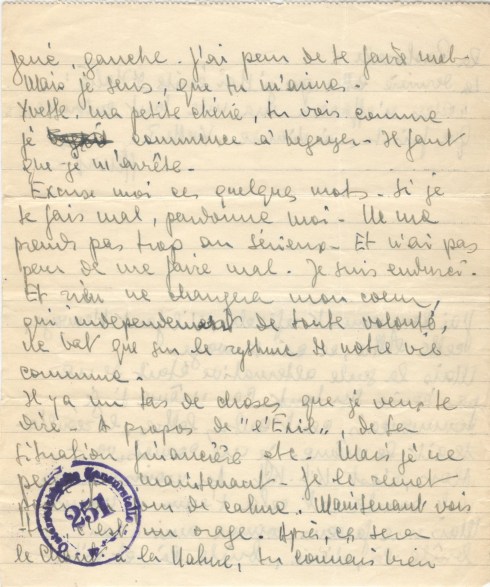 gené, gauche. J'ai peur de te faire mal.
Mais je sens, que tu m'aimes.
Yvette, ma petite chérie, tu vois comme
je commence à begayer. Il faut
que je m'arrête.
Excuse moi ces quelques mots. Si je
te fais mal, pardonne moi. Ne me
prends pas trop au sérieux. Et n'ai pas
peur de me faire mal. Je suis endurci.
Et rien ne changera mon coeur,
qui independement de toute volonté,
ne bat que sur le rythme de notre vie
commune.
Il y a un tas de choses que je veux te
dire. A propos de "l'Exil", de ta
situation financière etc. Mais je ne
maintenant. Je le remet
de calme. Maintenant vois
c'est un orage. Après, ça sera
le à la Nature, tu connais bien
Österreichische Zensurstelle
251